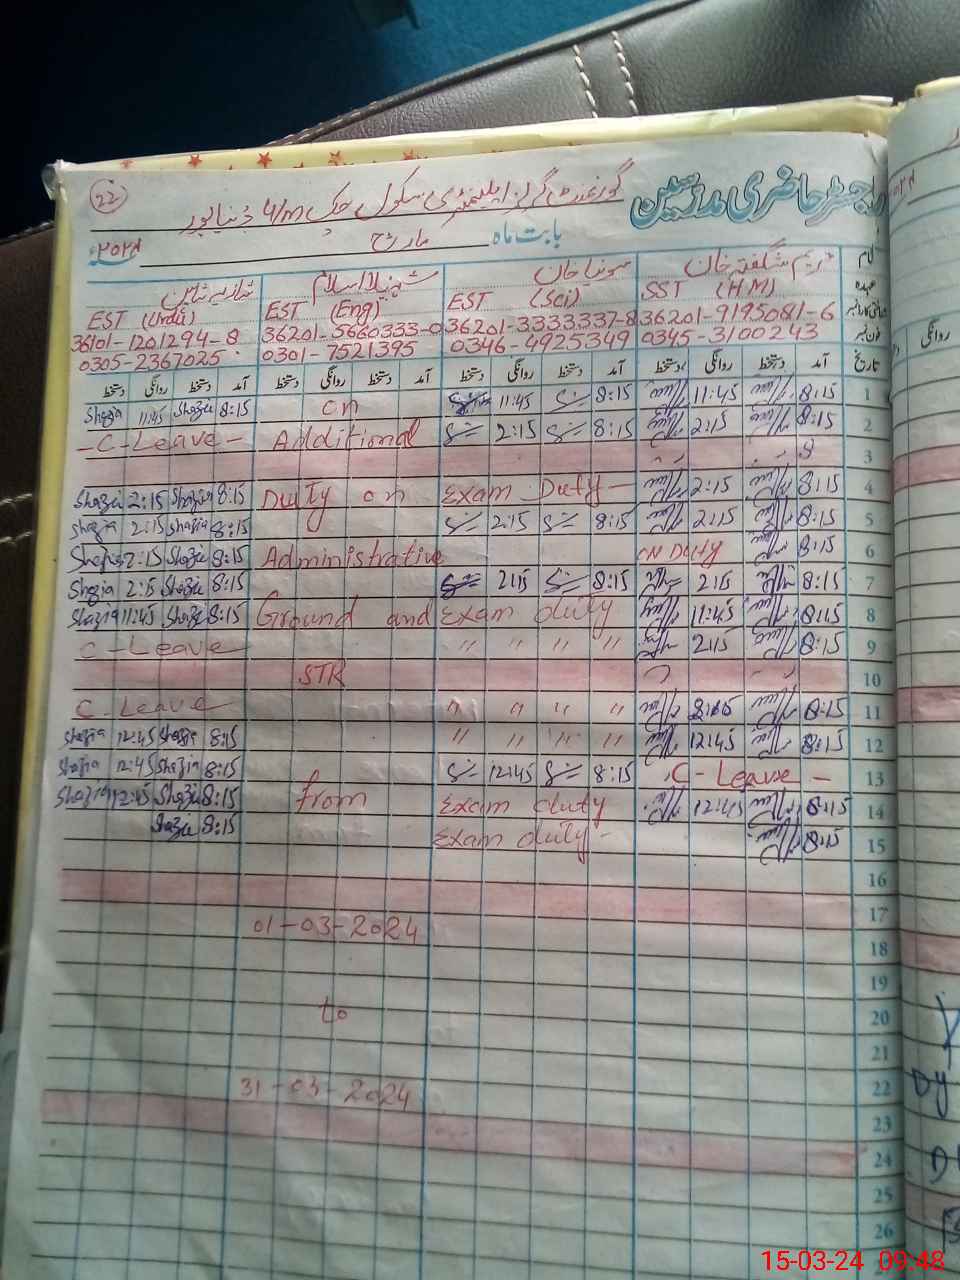 رجسٹر حاضری مدرسین
گورنمنٹ گرلز ایلیمنٹری سکول چک 4/m دنیاپور
22
بابت ماہ مارچ ۲۰۲۴
نام مریم شگفتہ خان سونیا خان شہنیلا اسلام شازیہ شاہین
عہدہ SST (HM) EST (Sci) EST (Eng) EST (Urdu)
36201-9195081-6 36201-3333337-8 36201-5660333-0 36101-1201294-8
فون نمبر 0345-3100243 0346-4925349 0301-7521395 0305-2367025
تاریخ آمد دستخط روانگی دستخط آمد دستخط روانگی دستخط آمد دستخط روانگی دستخط آمد دستخط روانگی دستخط
1 8:15 11:45 8:15 11:45 on 8:15 Shazia 11:45 Shazia
2 8:15 2:15 8:15 2:15 Additional - C-Leave -
3
4 8:15 2:15 Exam Duty - Duty on 8:15 Shazia 2:15 Shazia
5 8:15 2:15 8:15 2:15 8:15 Shazia 2:15 Shazia
6 8:15 ON DUTY Administrative 8:15 Shazia 2:15 Shazia
7 8:15 2:15 8:15 2:15 8:15 Shazia 2:15 Shazia
8 8:15 11:45 Exam duty Ground and 8:15 Shazia 11:45 Shazia
9 8:15 2:15 " " " " C-Leave
10 STR
11 8:15 " " " " C-Leave
12 8:15 12:45 " " " " 8:15 Shazia 12:45 Shazia
13 C-Leave - 8:15 12:45 8:15 Shazia 12:45 Shazia
14 8:15 12:45 Exam duty from 8:15 Shazia 12:45 Shazia
15 8:15 Exam duty - 8:15 Shazia
16
17
01-03-2024
18
19
20
to
21
22
31-03-2024
23
24
25
26
روانگی
Dy
15-03-24 09:48